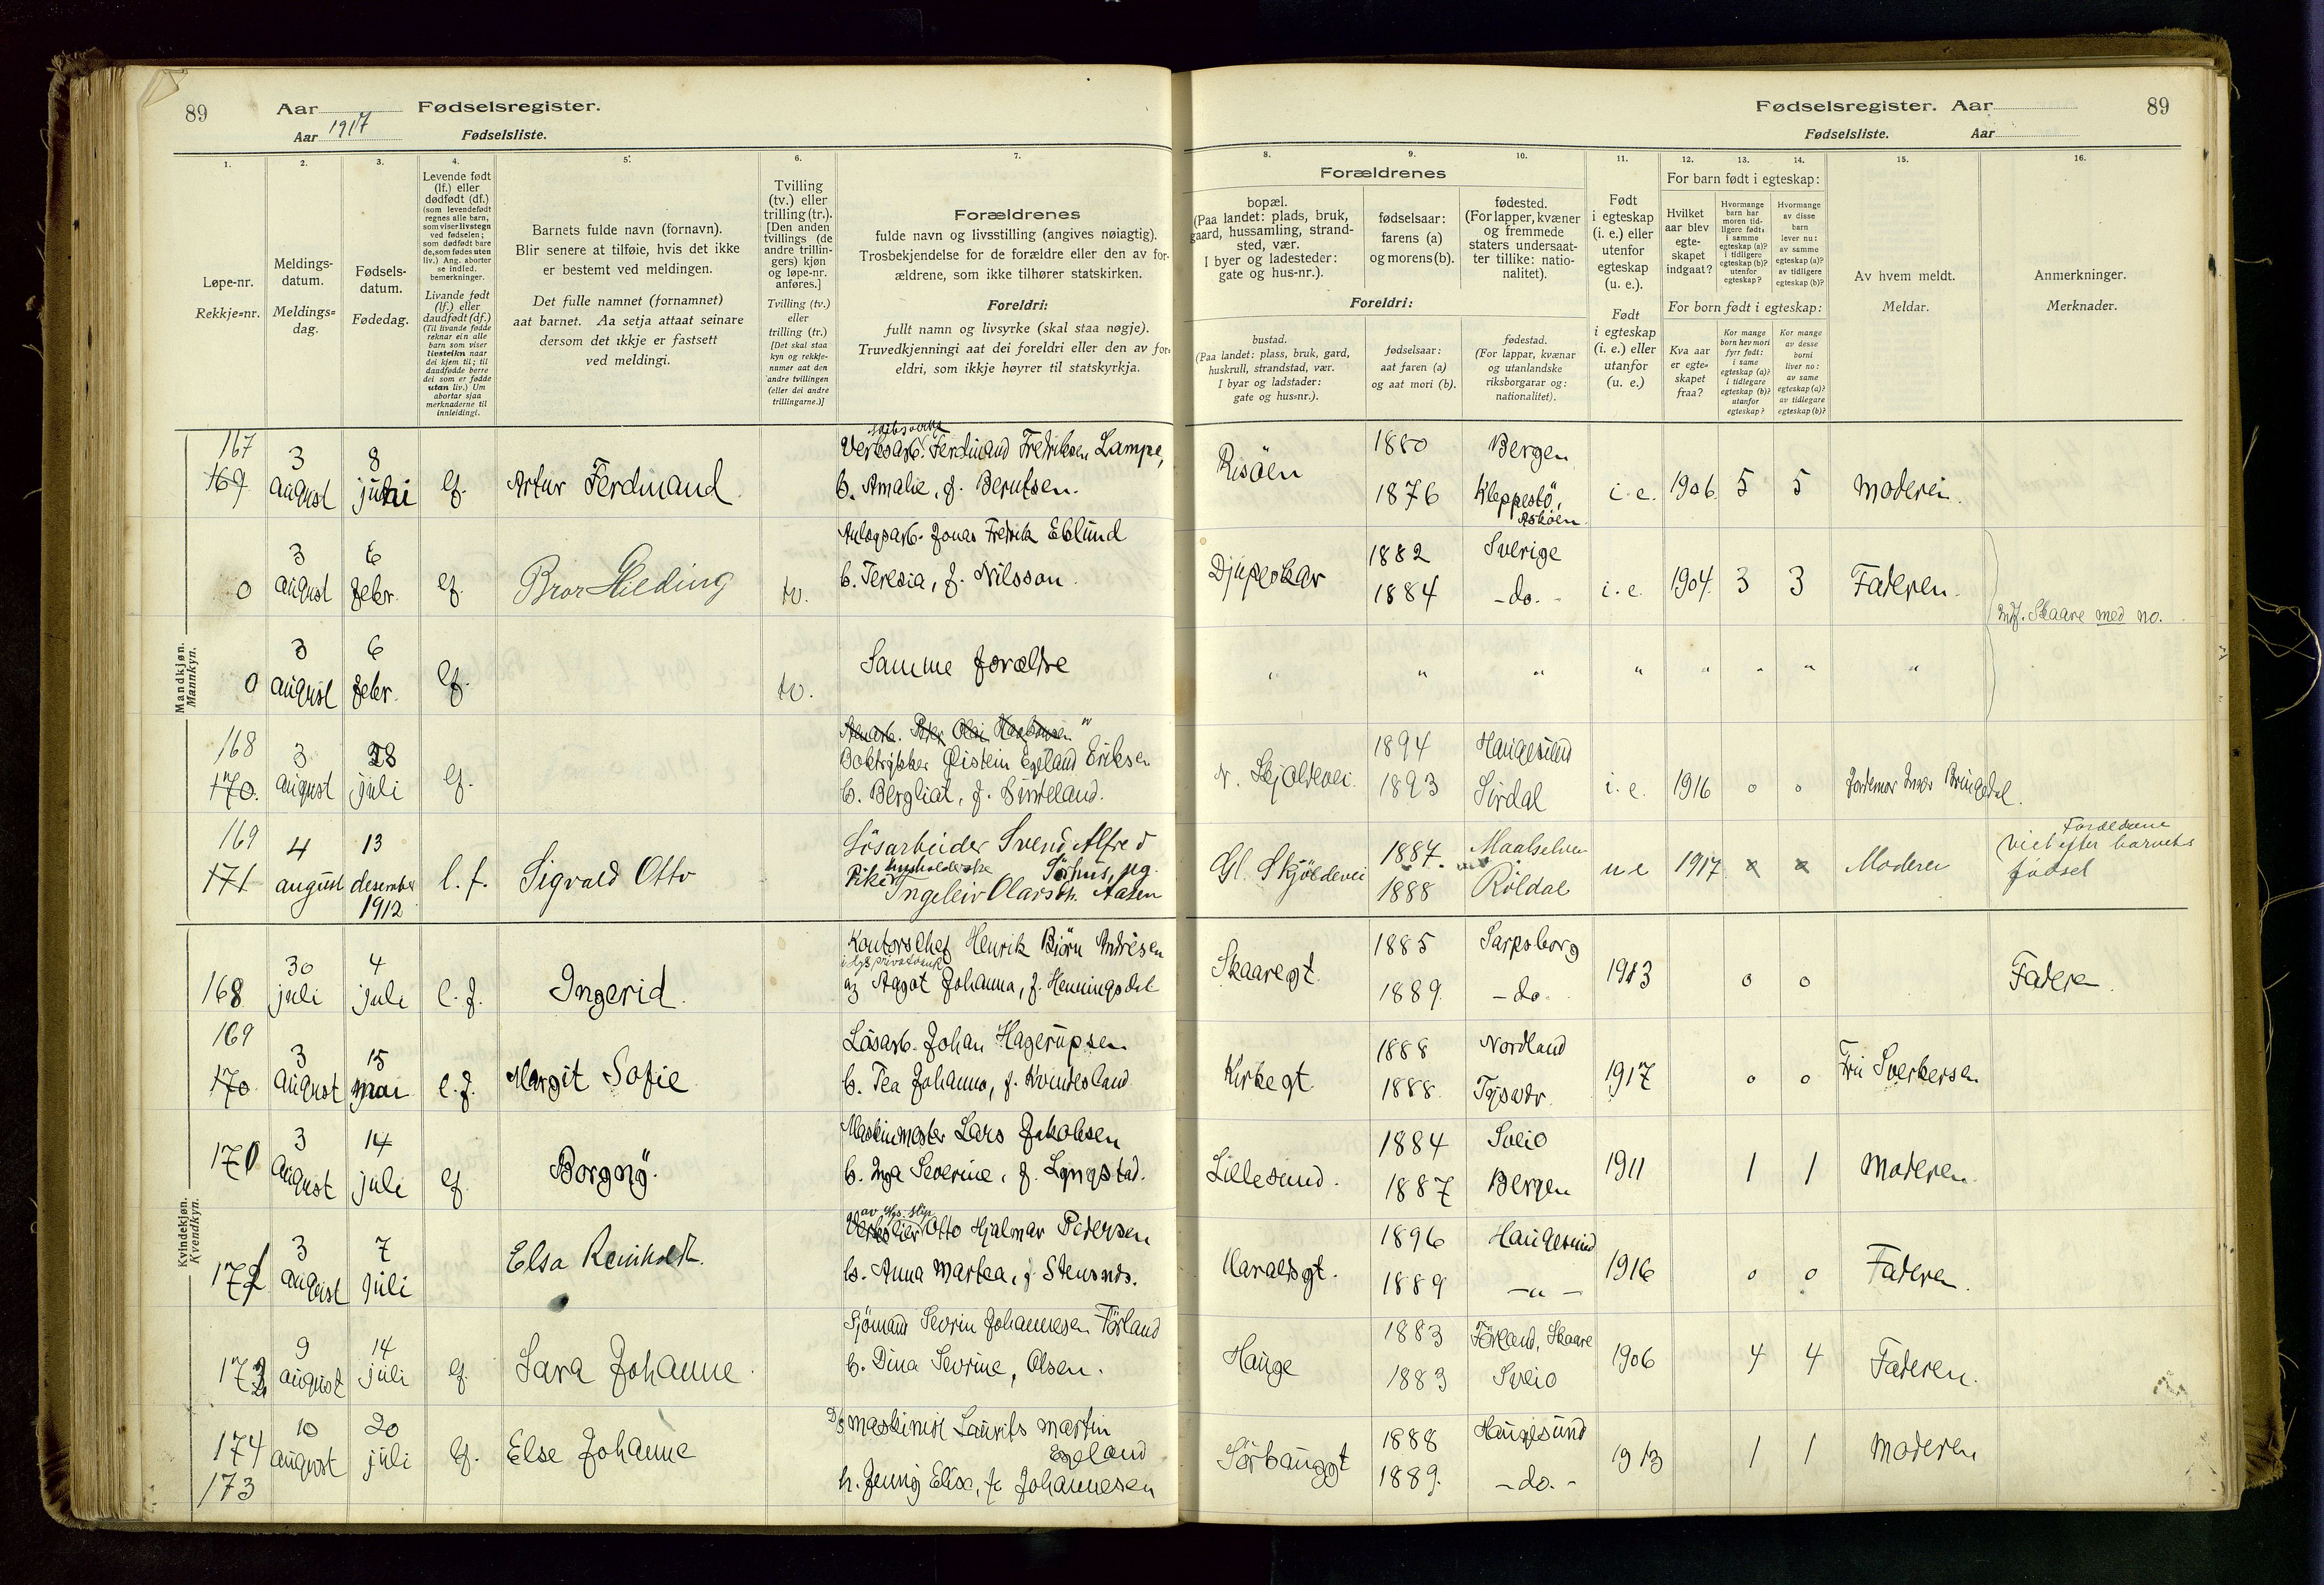 89
Aar
Fødselsregister.
Aar 1917
Fødselsliste.
1.
2.
3.
4.
5.
6.
7.
Løpe-nr.
Rekkje=nr.
Meldings-
datum.
Meldings=
dag.
Fødsels-
datum.
Fødedag.
Levende født
(lf.) eller
dødfødt (df.)
(som levendefødt
regnes alle barn,
som viser livstegn
ved fødselen;
som dødfødt bare
de, som fødes uten
liv.) Ang. aborter
se indled.
bemerkninger.
Livande født
(lf.) eller
daudfødt (df.)
(Til livande fødde
reknar ein alle
barn som viser
livsteikn naar
dei kjem til; til
daudfødde berre
dei som er fødde
utan liv.) Um
abortar sjaa
merknaderne til
innleidingi.
Barnets fulde navn (fornavn).
Blir senere at tilføie, hvis det ikke
er bestemt ved meldingen.
Det fulle namnet (fornamnet)
aat barnet. Aa setja attaat seinare
dersom det ikkje er fastsett
ved meldingi.
Tvilling
(tv.) eller
trilling (tr.).
[Den anden
tvillings (de
andre trillin-
gers) kjøn
og løpe-nr.
anføres.]
Tvilling (tv.)
eller
trilling (tr.)
[Det skal staa
kyn og rekkje-
numer aat den
andre tvillingen
(eller dei andre
trillingarne.)]
Forældrenes
fulde navn og livsstilling (angives nøiagtig).
Trosbekjendelse for de forældre eller den av for-
ældrene, som ikke tilhører statskirken.
Foreldri:
fullt namn og livsyrke (skal staa nøgje).
Truvedkjenningi aat dei foreldri eller den av for-
eldri, som ikkje høyrer til statskyrkja.
Mandkjøn.
Mannkyn.
167
169
3
august
8
juli
lf.
Artur Ferdinand
Verksarb. Ferdinand Fredriksen Lampe,
h. Amalie, f. Berntsen.
0
3
august
6
febr.
lf.
Bror Hilding
tv.
Anlægsarb. Jonas Fredrik Eklund
h. Teresia, f. Nilsson.
0
3
august
6
febr.
lf.
tv.
Samme forældre
168
170.
3
august
28
juli
lf.
Boktrykker Øistein Egeland Eriksen
h. Bergliot, f. Sirdeland.
169
171
4
august
13
desember
1912
l.f.
Sigvald Otto
Løsarbeider Svend Alfred
husholderske Sørhus, og
Pike Ingeleiv Olarsdtr. Aasen
Kvindekjøn.
Kvendkyn.
168
30
juli
4
juli
l.f.
Ingerid.
Kontorschef Henrik Bjørn Andresen
i Hgs privatbank
og Aagot Johanna, f. Henningsdal
169
170
3
august
15
mai
l.f.
Margit Sofie
Løsarb. Johan Hagerupsen
h. Tea Johanna, f. Kvindesland
170
3
august
14
juli
lf.
Borgny.
Maskinmester Lars Jakobsen
h. Inga Severine, f. Lyngstad.
171
3
august
7
juli
Elsa Reinholdt.
Otto Hjalmar Pedersen
h. Anna Martea, f. Stensnds.
172
9
august
14
juli
lf.
Sara Johanne
Sjømand Sevrin Johannesen Førland
h. Dina Sevrine, Olsen.
174
173
10
august
20
juli
lf.
Else Johanne
Maskinist Laurits Martin
Egeland
h. Jenny Elise, f. Johannesen
Fødselsregister. Aar
89
Fødselsliste.
Aar
8.
9.
10.
11.
12.
13.
14.
15.
16.
Forældrenes
bopæl.
(Paa landet: plads, bruk,
gaard, hussamling, strand-
sted, vær.
I byer og ladesteder:
gate og hus-nr.).
fødselsaar:
farens (a)
og morens (b).
fødested.
(For lapper, kvæner
og fremmede
staters undersaat-
ter tillike: natio-
nalitet).
Foreldri:
bustad.
(Paa landet: plass, bruk, gard,
huskrull, strandstad, vær.
I byar og ladstader:
gate og hus=nr.).
fødselsaar:
aat faren (a)
og aat mori (b).
fødestad.
(For lappar, kvænar
og utanlandske
riksborgarar og:
nationalitet).
Født
i egteskap
(i. e.) eller
utenfor
egteskap
(u. e.).
Født
i egteskap
(i. e.) eller
utanfor
(u. e.)
For barn født i egteskap:
Hvilket
aar blev
egte-
skapet
indgaat?
Hvormange
barn har
moren tid-
ligere født:
i samme
egteskap (a)?
i tidligere
egteskap (b)?
utenfor
egteskap?
Hvormange
av disse
barn
lever nu:
av samme
egteskap (a)?
av tidligere
egteskap (b)?
For born født i egteskap:
Kva aar
er egte=
skapet
fraa?
Kor mange
born hev mori
fyrr født:
i same
egteskap (a)?
i tidlegare
egteskap (b)?
utanfor
egteskap?
Kor mange
av desse
borni
liver no:
av same
egteskap (a)?
av tidlegare
egteskap (b)?
Av hvem meldt.
Meldar.
Anmerkninger.
Merknader.
Risøen
1880
1876
Bergen
Kleppestø,
Askøen.
i. e.
1906
5
5
Moderen.
Djupeskar
1882
1884
Sverige
-do.-
i. e.
1904.
3
3
Faderen.
indf. Skaare med no.
"
"
"
"
"
"
"
"
N. Skjoldevei.
1894
1893
Haugesund
Sirdal
i. e.
1916
0
0
Jordemor Inær Bringedal.
Gl. Skjoldevei
1887.
1888
Maalselven
Røldal
u e
1917
x
x
Moderen
Forældrene
viet efter barnets
fødsel
Skaaregt.
1885
1889.
Sarpsborg
-do.
1913
0
0
Faderen.
Kirkegt.
1888
1888.
Nordland
Tysvær.
1917
0
0
Fru Sverkersen
Lillesund.
1884
1887
Sveio
Bergen
1911
1
1
Moderen.
Haraldsgt.
1896
1889
Haugesund
-"-
1916
0
0
Faderen.
Hauge
1883
1883
Førland, Skaare
Sveio
1906
4
4
Faderen.
Sørhauggt
1888
1889.
Haugesund
-do.-
1913
1
1
Moderen